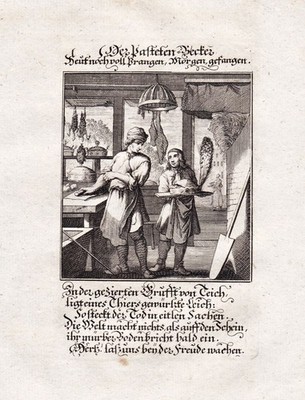 Der Pasteten-Becker
Heut noch voll Prangen, Morgen, gefangen.
In der gezierten Grufft von Teich
ligt eines Thiers gewürtzte Leich:
So steckt der Tod in eitlen Sachen.
Die Welt macht nichts, als auff den Schein,
ihr mürber Boden bricht bald ein.
Herz, laß uns bey der Freude wachen.